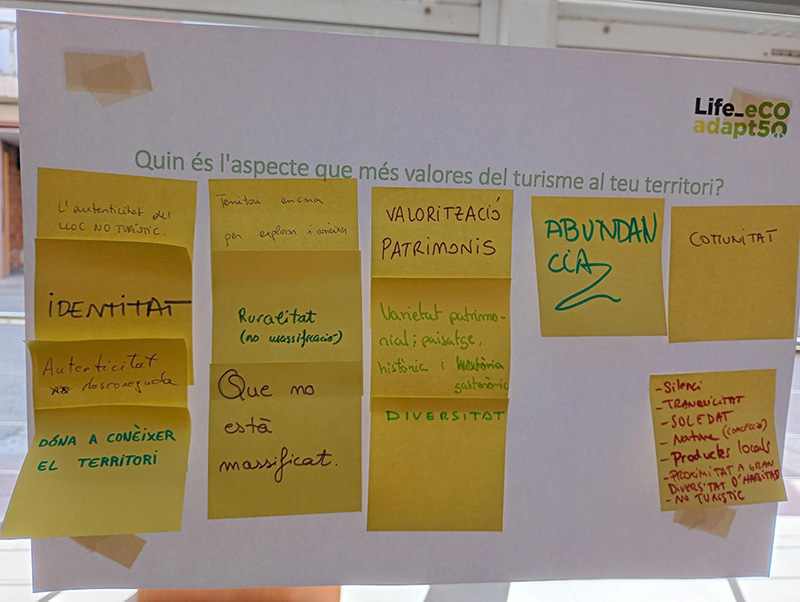 Life_eCO
adapt50
Quin és l'aspecte que més valores del turisme al teu territori?
L'autenticitat del
LLOC NO TURÍSTIC.
IDENTITAT
Autenticitat
desconeguda
DÓNA A CONÈIXER
EL TERRITORI
Territori encara
per explorar i conèixer
Ruralitat
(no massificació)
Que no
està
massificat.
VALORITZACIÓ
PATRIMONIS
Varietat patrimo-
nial; paisatge,
històric i
gastronòmic
DIVERSITAT
ABUNDAN
CIA
COMUNITAT
- Silenci
- TRANQUILITAT
- SOLEDAT
- Natura (connecció)
- Productes locals
- PROXIMITAT A GRAN
DIVERSITAT D'HÀBITAS
- NO TURÍSTIC